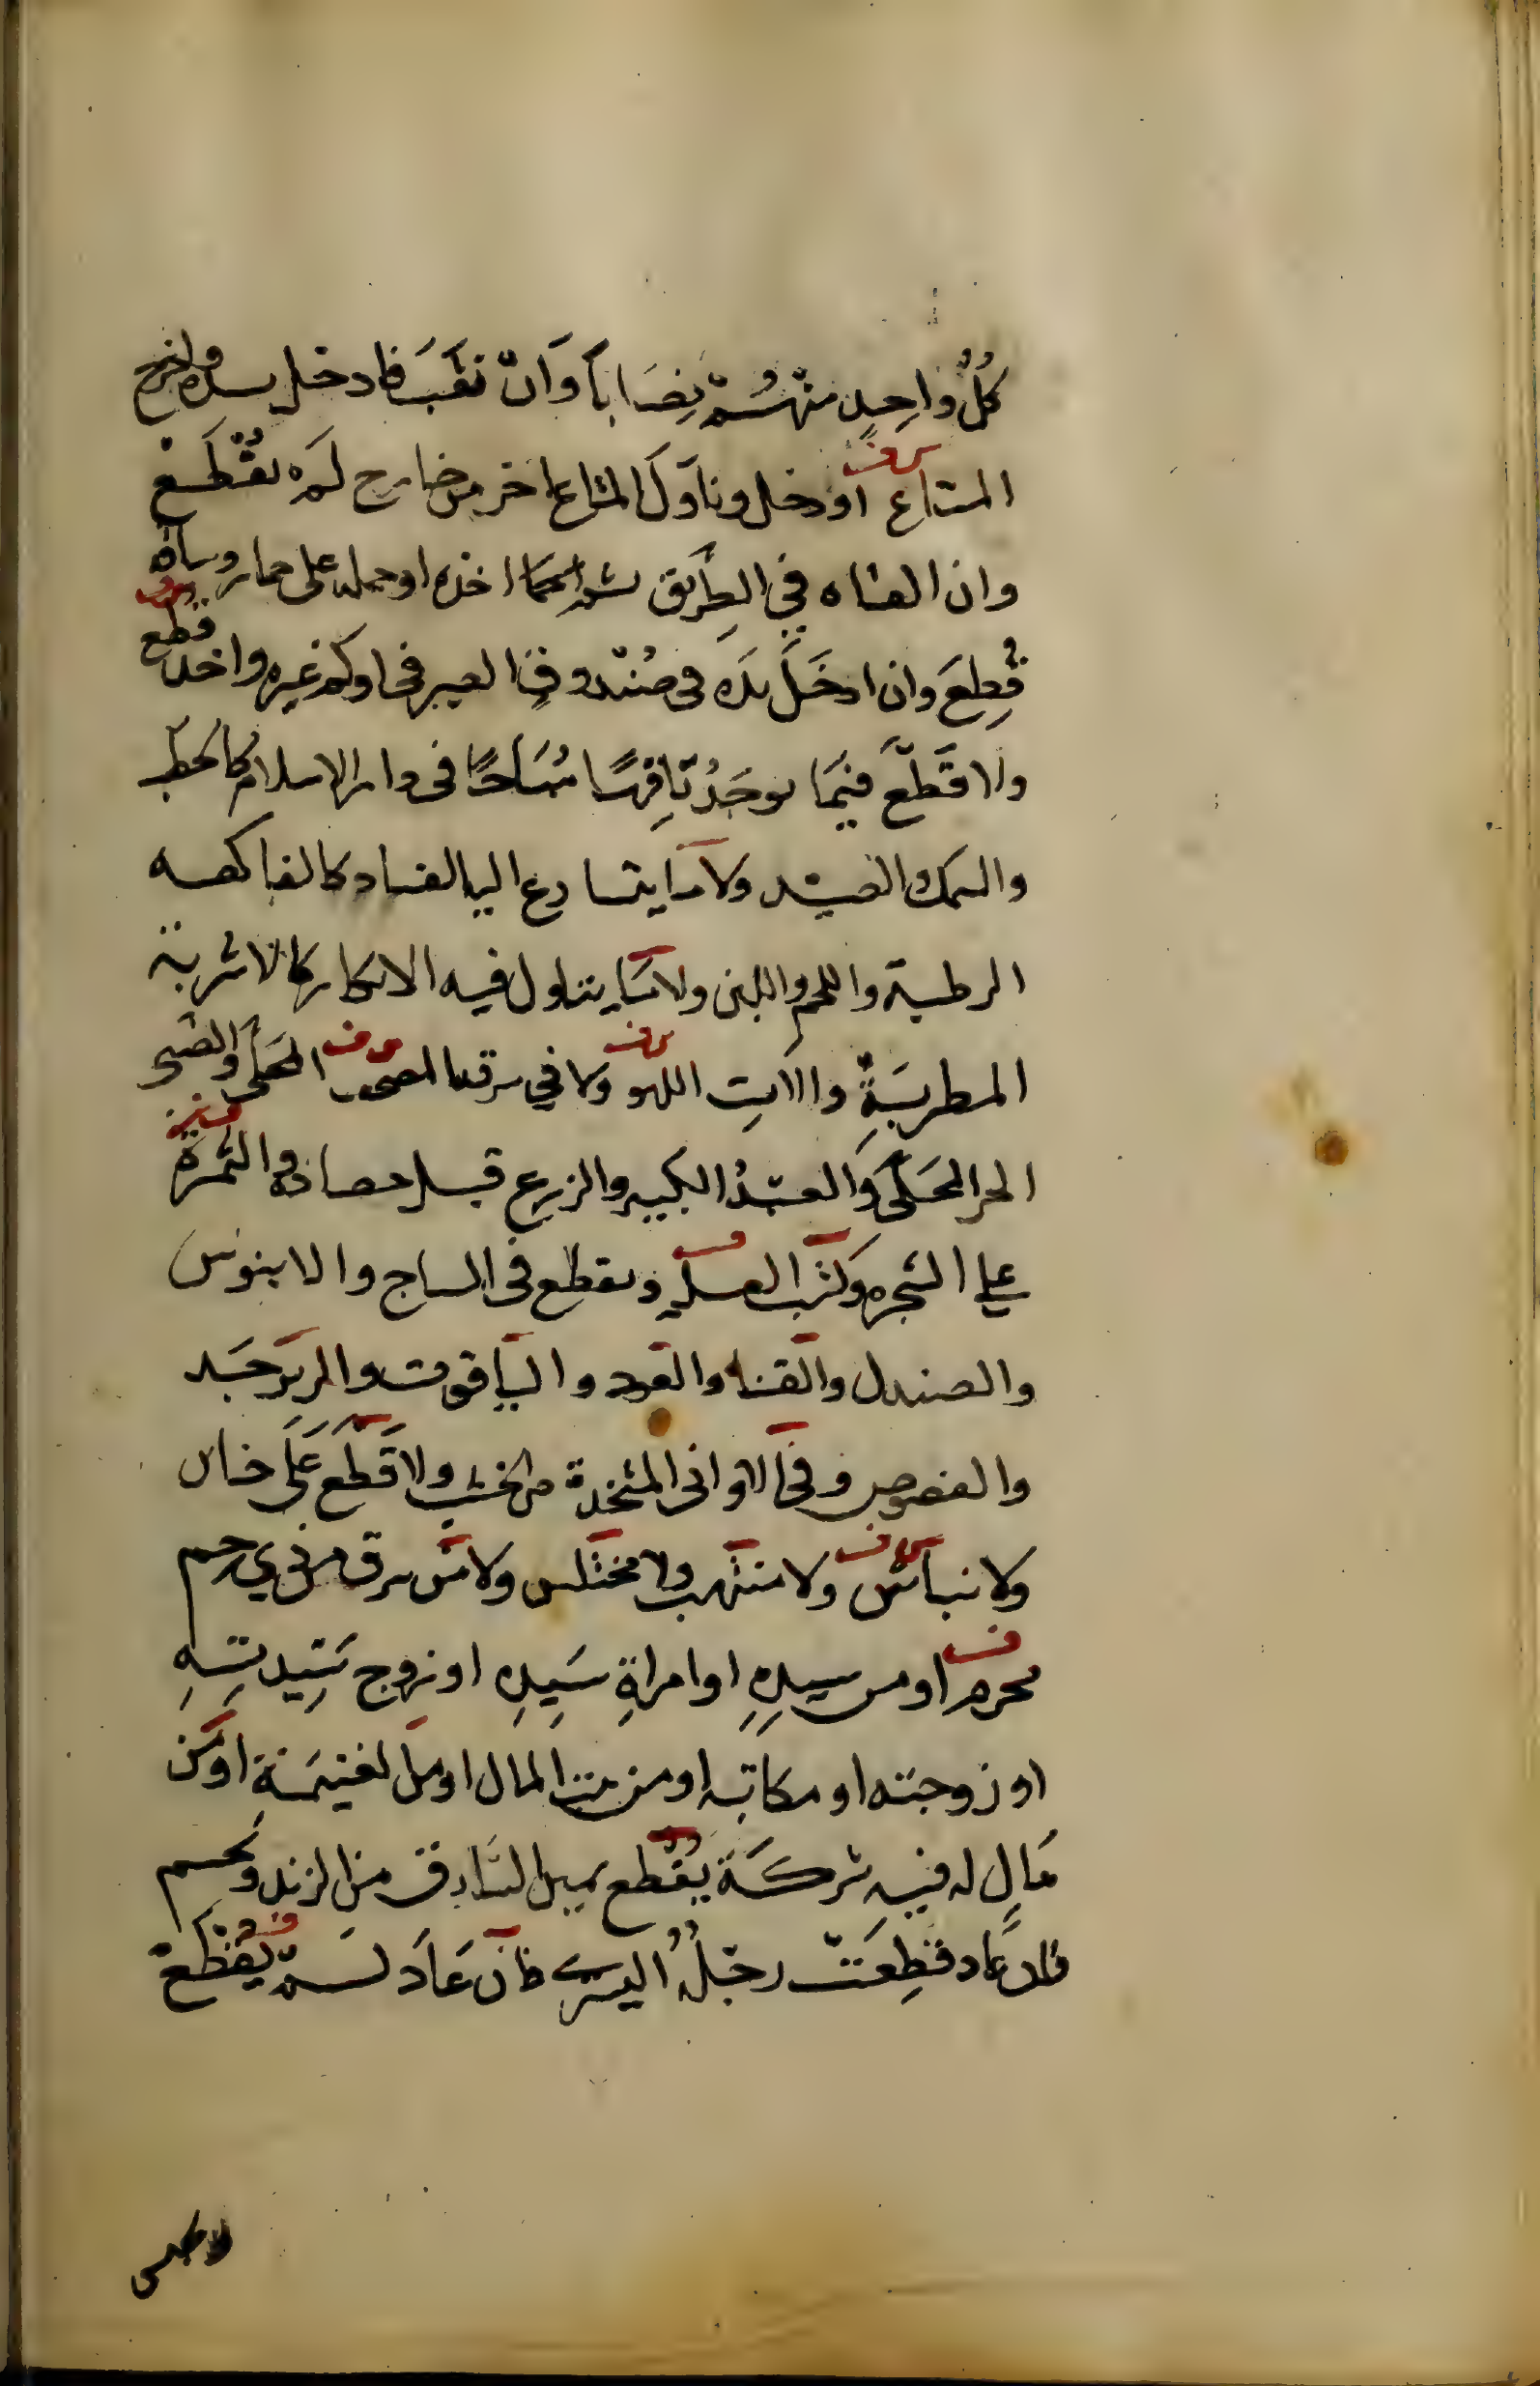 كُلُّ واحِدٍ منْهُمْ نِصَاباً وَانْ نقَبَ فادخل يده واخرج
المتاع اوْ دخل وناوَلَ المتاع اخر من خارج لَمْ يُقْطَعْ
وان القاه في الطَريق ثمَّ اخذه او حمله على حمار وساقه
قُطِعَ وان ادخَلَ يده فى صُنْدوقِ الصيرفى او كم غيره واخذ قطع
ولا قَطْعَ فيمَا يوجَدُ تَافِهًا مُبَاحًا فى دار الاسلام كالحطب
والسمك والصيْد ولا مَا يتسارع اليه الفساد كالفاكهه
الرطبة واللحم واللبن ولا مَا يتاول فيه الانكار كالاشربة
المطربَةِ والاتِ اللهو ولا في سرقة المصحف المحلى والصبى
الحر المحَلَّى وَالعبْدُ الكبير والزرع قبل حصاده والثمرة
على الشجره وكتب العلم ويقطع فى الساج والابنوس
والصندل والقنا والعود والياقوت والزبرجَد
والفصوص وفى الاوانى المتخذة من الخشب ولا قَطْعَ عَلَى خاين
ولا نباش ولا منتهب ولا مختلس ولا من سرق من ذي رحم
محرم او من سيدِهِ او امراةِ سَيِدِه او زوج سَيِدتِهِ
او زوجته او مكاتبه او من بيت المال او من الغنيمَةِ اوْ مَن
مَالٍ له فيهِ شركَةٌ يُقْطع يمين السَارق من الزند وتحسم
فان عَاد قطِعَتْ رجْلُهُ اليسرى فان عَادَ لَمْ يُقْطَعْ